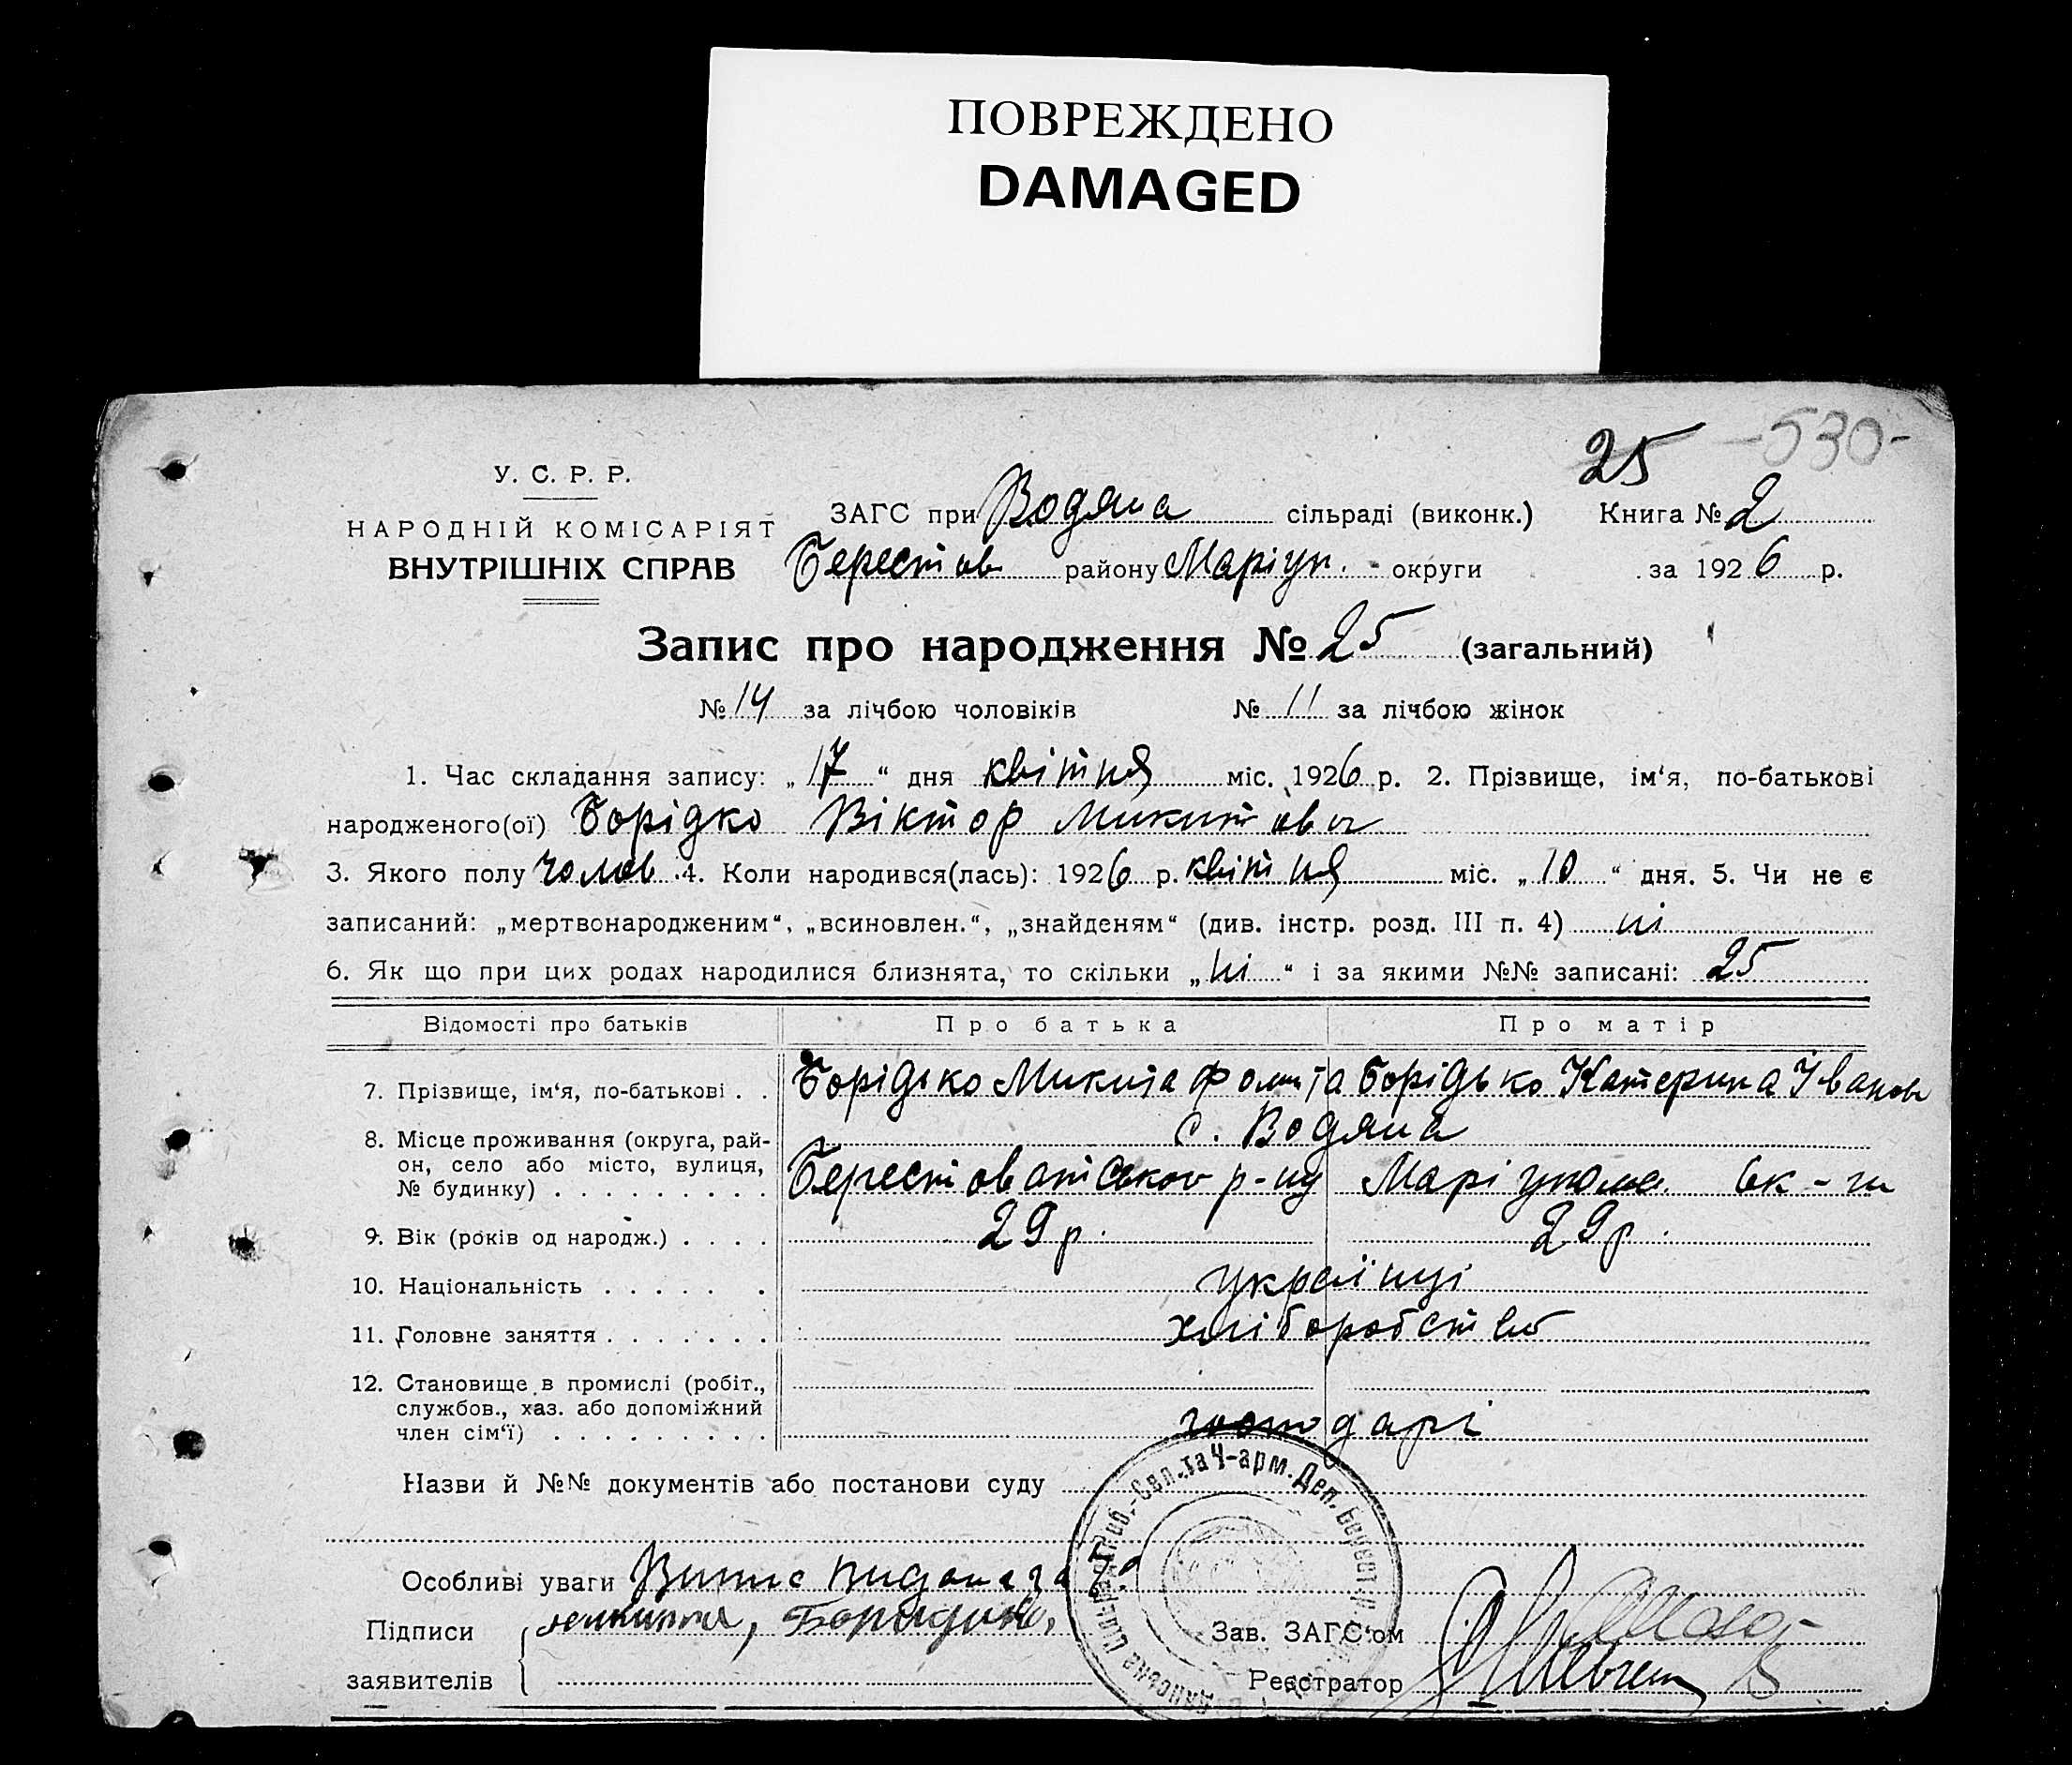 ПОВРЕЖДЕНО
DAMAGED
25 -530-
У. С. Р. Р.
НАРОДНІЙ КОМІСАРІЯТ
ВНУТРІШНІХ СПРАВ
ЗАГС при Водяна сільраді (виконк.) Книга № 2
Берестов району Маріуп. округи за 1926 р.
Запис про народження № 25 (загальний)
№ 14 за лічбою чоловіків № 11 за лічбою жінок
1. Час складання запису: „17“ дня квітня міс. 1926 р. 2. Прізвище, ім‘я, по-батькові
народженого(ої) Борідко Віктор Микитов
3. Якого полу чолов. 4. Коли народився(лась): 1926 р. квітня міс. „10“ дня. 5. Чи не є
записаний: „мертвонародженим“, „всиновлен.“, „знайденям“ (див. інстр. розд. III п. 4) ні
6. Як що при цих родах народилися близнята, то скільки „ні“ і за якими №№ записані: 25
Відомості про батьків Про батька Про матір
7. Прізвище, ім‘я, по-батькові . . Борідько Микита Борідько Катерина Іванов
8. Місце проживання (округа, рай-
он, село або місто, вулиця,
№ будинку) . . . . . . . . .
с. Водяна
Берестоватськог р-ну
9. Вік (років од народж.) . . . . 29 р. 29 р.
10. Національність . . . . . . українці
11. Головне заняття . . . . . . . хліборобство
12. Становище в промислі (робіт.,
службов., хаз. або допоміжний
член сім‘ї) . . . . . . . . .
господарі
Назви й №№ документів або постанови суду
Особливі уваги
Підписи
заявителів
Зав. ЗАГС‘ом
Реєстратор